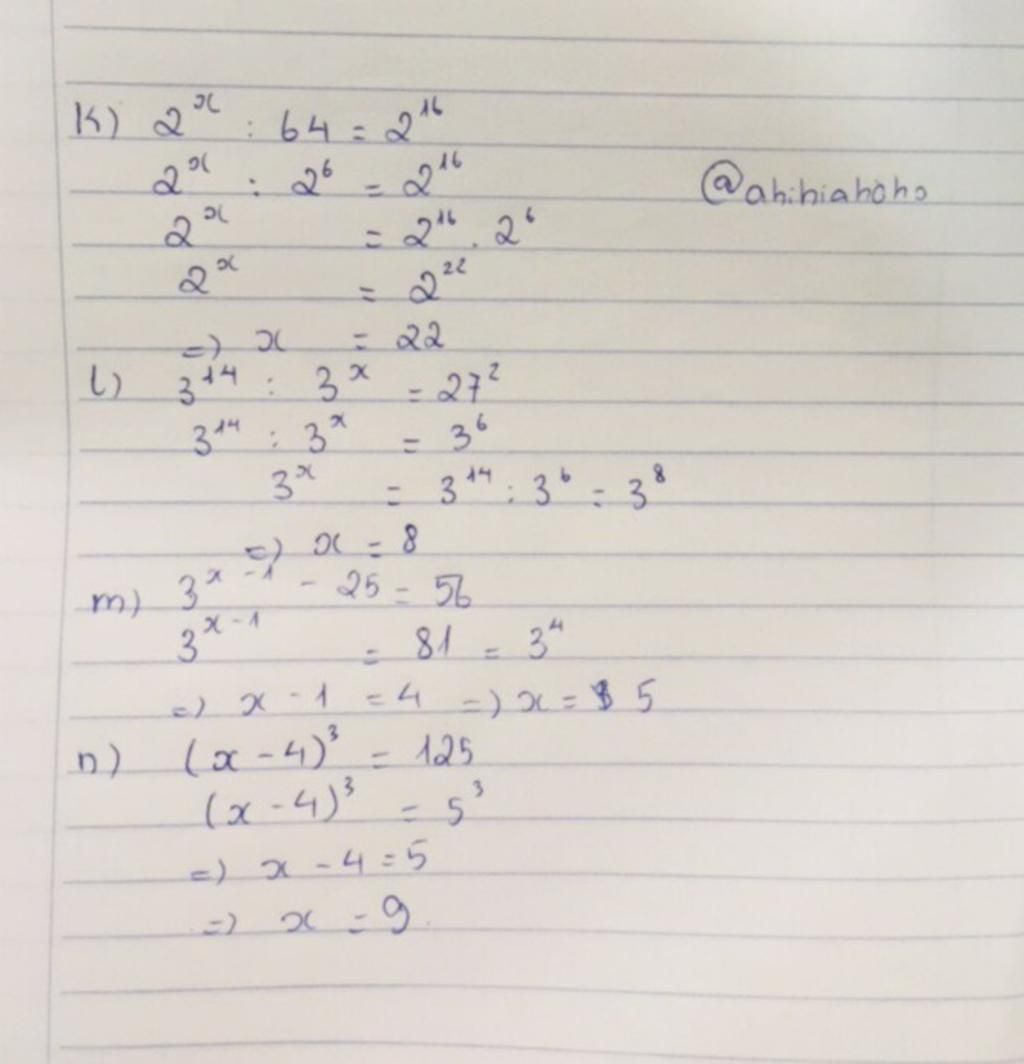 k) 2^x : 64 = 2^16
2^x : 2^6 = 2^16
@ahihiahoho
2^x = 2^16 . 2^6
2^x = 2^22
=> x = 22
l) 3^14 : 3^x = 27^2
3^14 : 3^x = 3^6
3^x = 3^14 : 3^6 = 3^8
=> x = 8
m) 3^x-1 - 25 = 56
3^x-1 = 81 = 3^4
=> x - 1 = 4 => x = 5
n) (x - 4)^3 = 125
(x - 4)^3 = 5^3
=> x - 4 = 5
=> x = 9